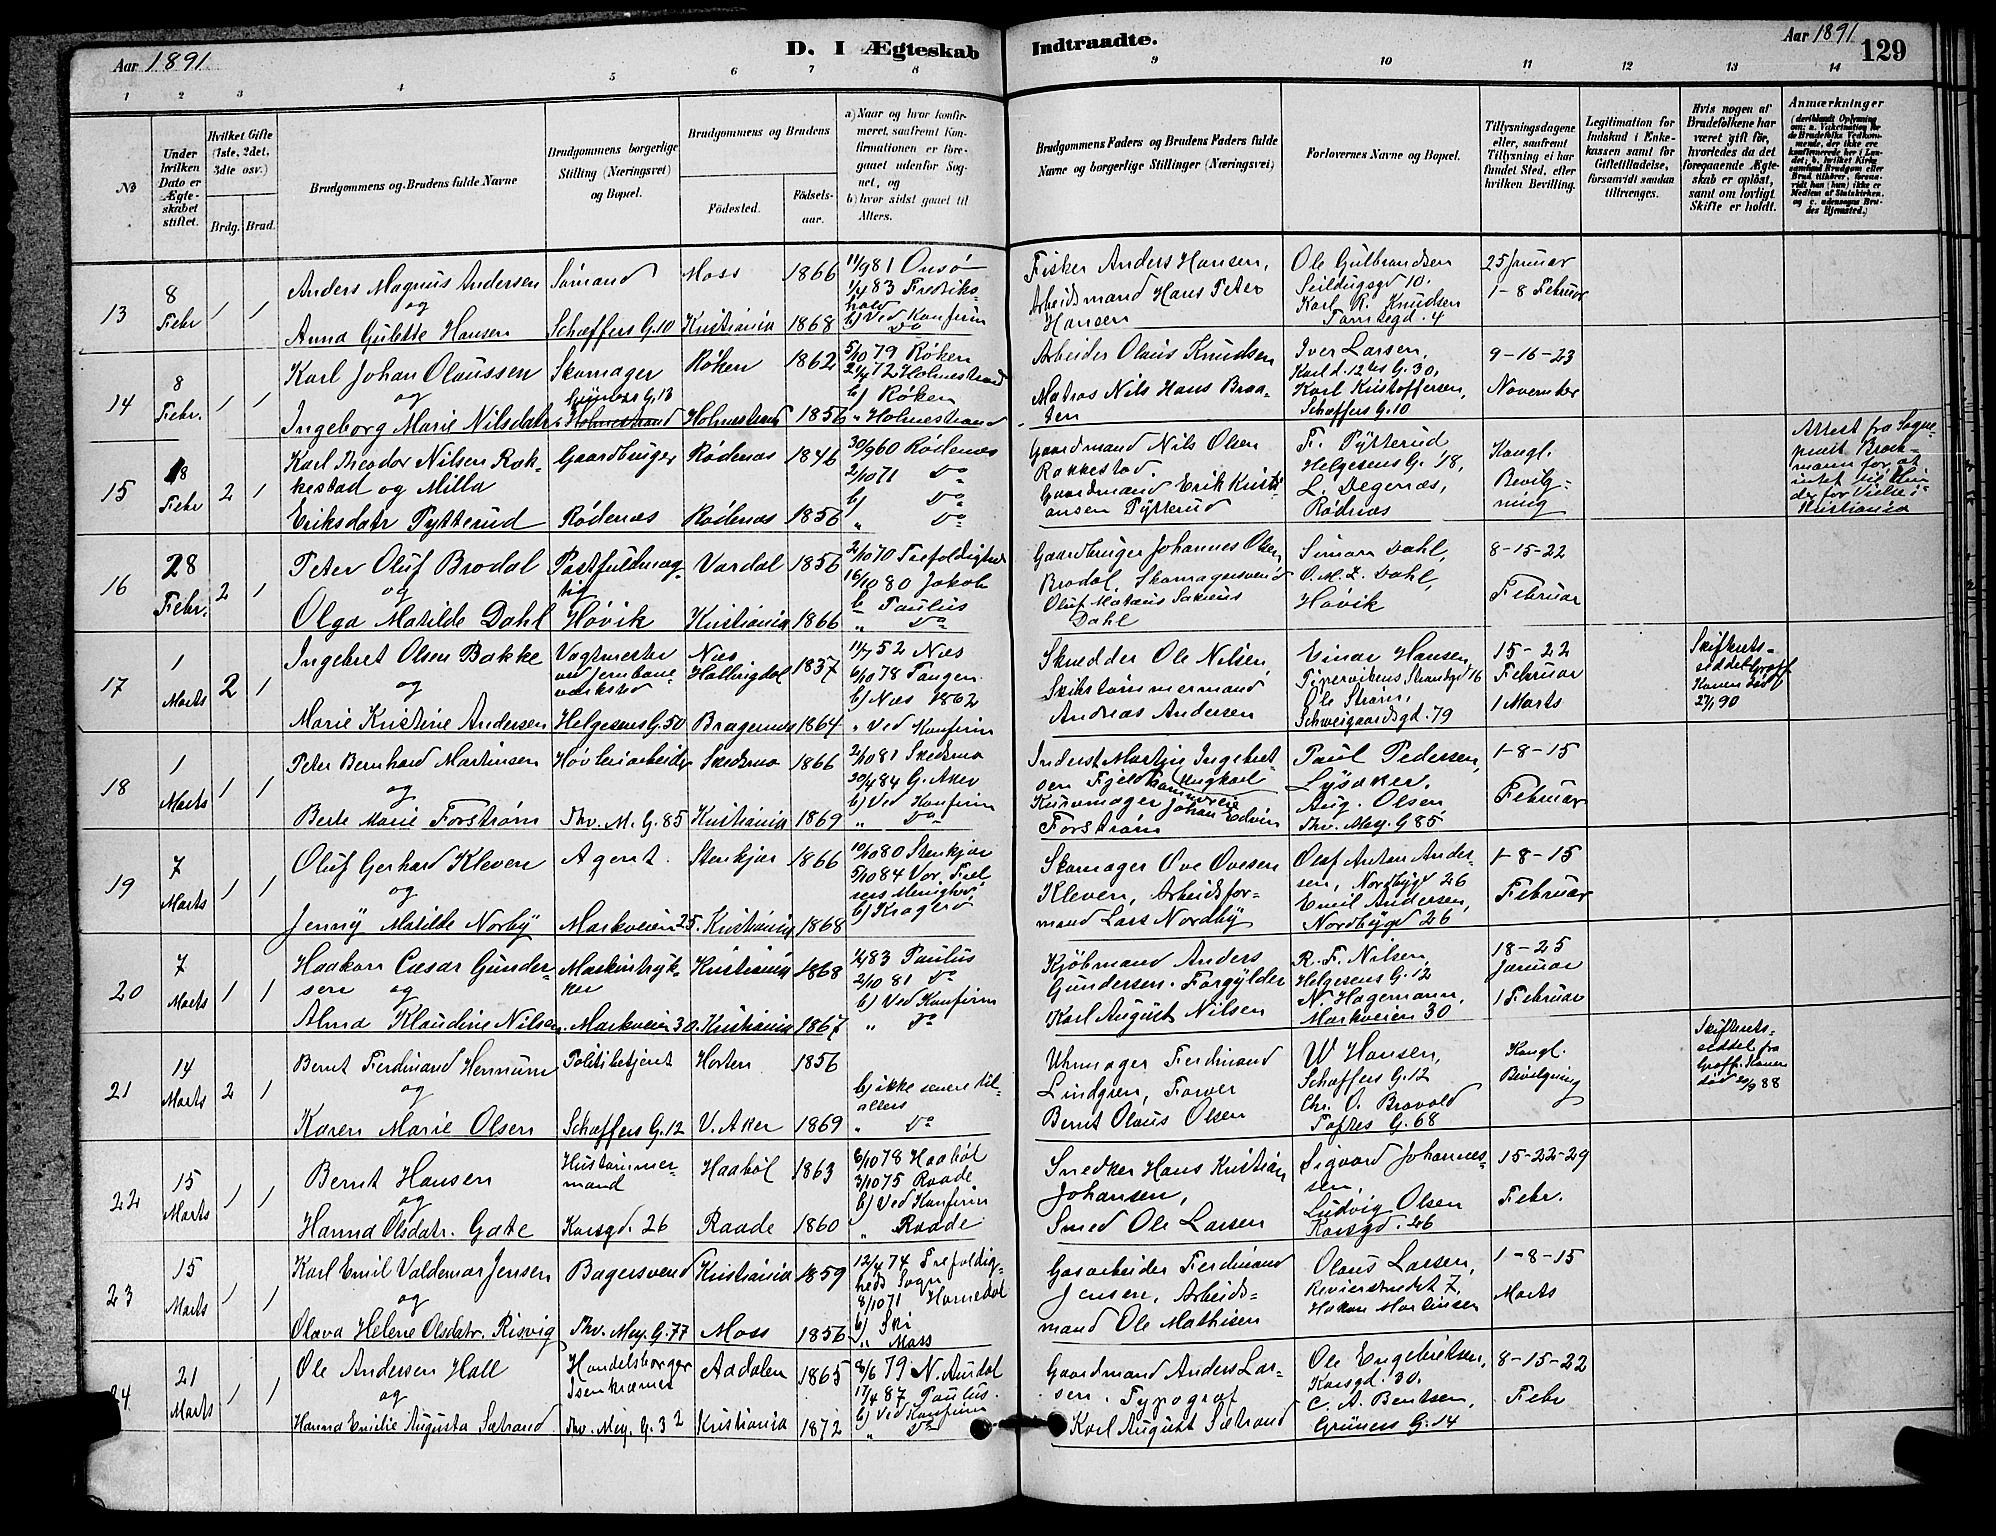 Aar 1891
D. I Ægteskab Indtraadte.
Aar 1891
129
1 2 3 4 5 6 7 8 9 10 11 12 13 14
No
Under hvilken Dato er Ægteskabet stiftet.
Hvilket Gifte (1ste, 2det, 3die osv.)
Brdg. Brud.
Brudgommens og Brudens fulde Navne
Brudgommens borgerlige Stilling (Næringsvei) og Bopæl.
Brudgommens og Brudens
Fødested.
Fødsels-aar.
a) Naar og hvor konfirmeret, saafremt Konfirmationen er foregaaet udenfor Sognet, og
b) hvor sidst gaaet til Alters.
Brudgommens Faders og Brudens Faders fulde Navne og borgerlige Stillinger (Næringsvei)
Forlovernes Navne og Bopæl.
Tillysningsdagene eller, saafremt Tillysning ei har fundet Sted, efter hvilken Bevilling.
Legitimation for Indskud i Enkekassen samt for Giftetilladelse, forsaavidt saadan tiltrænges.
Hvis nogen af Brudefolkene har været gift før, hvorledes da det foregaaende Ægteskab er opløst, samt om lovligt Skifte er holdt.
Anmærkninger
13
8 Febr
1 1
Anders Magnus Andersen
og
Anna Gulette Hansen
Sømand
Schæffers G. 10
Moss 1866
Kristiania 1868
11/9 81 Onsø
1/4 83 Fredrikshald
b) Ved Konfirm
Do
Fisker Anders Hansen,
Arbeidsmand Hans Peter
Hansen
Ole Gulbrandsen
Seildugsgd 10.
Karl R. Knudsen
25 Januar
1-8 Februar
14
8 Febr.
1 1
Karl Johan Olaussen
og
Ingeborg Marie Nilsdatr
Skomager
Holmestrand
Røken 1862
Holmestrand 1856
5/10 79 Røken
Holmestrand
b) Røken
" Holmestrand
Arbeider Olaus Knudsen
Matros Nils Hans Braaten
Iver Larsen,
Karl d. 12tes G. 30,
Karl Kristoffersen,
Schæffers G. 10
9-16-23
November
15
18 Febr
2 1
Karl Theodor Nilsen Rakkestad og Milla
Eriksdatr Tytterud
Gaardbruger
Rødenæs
Rødenæs 1846
Rødenæs 1856
30/9 60 Rødenæs
2/10 71 Do
b) Do
" Do
Gaardmand Nils Olsen
Rakkestad
Gaardmand Erik Kristiansen Tytterud
F. Tytterud
Helgesens G. 18,
L. Degernæs,
Rødenæs
Kongl. Bevilgning
Attest fra Sogneprest Brochmann for, at intet til Hinder for Vielse i Kristiania
16
28 Febr.
2 1
Peter Oluf Brodal
og
Olga Matilde Dahl
Postfuldmægtig
Høvik
Vardal 1856
Kristiania 1866
2/10 70 Trefoldighed
10/10 80 Jakob
b) Paulus
" Do
Gaardbruger Johannes Olsen
Brodal Skomagersvend
Dahl
Simon Dahl,
O. M. L. Dahl,
Høvik
8-15-22
Februar
17
1 Marts
2 1
Ingebret Olsen Bakke
og
Marie Kristine Andersen
Vagtmester
ved Jernbaneverksted
Helgesens G. 50
Næs Hallingdal 1837
Bragernes 1864
11/7 52 Næs
6/10 78 Tangen
b) Næs 1862
" Ved Konfirm
Skrædder Ole Nilsen
Skibstømmermand
Andreas Andersen
Einar Hansen,
Pipervikens Strandgd 16
Ole Strøm,
Schweigaardsgd. 79
15-22
Februar
1 Marts
Skifterets-
Konen død
27/1 90
18
1 Marts
1 1
Peter Bernhard Martinsen
og
Berte Marie Forstrøm
Høvleriarbeider
Thv. M. G. 85
Skedsmo 1866
Kristiania 1869
2/10 81 Skedsmo
20/4 84 G. Aker
b) Ved Konfirm
" Do
Inderst Martin Ingebretsen Fjeldhammereie Ungkarl
Kurvmager Johan Edvin
Forstrøm
Paul Pedersen,
Lysaker,
Aug. Olsen,
Thv. Mey. G 85
1-8-15
Februar
19
7 Marts
1 1
Oluf Gerhard Kleven
og
Jenny Matilde Norby
Agent.
Markveien 25.
Stenkjær 1866
Kristiania 1868
10/10 80 Stenkjær
5/10 84 Vor Frelsers Menighed
b) Kragerø
Skomager Ove Ovesen
Kleven, Arbeidsformand Lars Nordby
Olaf Anton Andersen, Nordbygd 26
Emil Andersen,
Nordbygd 26
1-8-15
Februar
20
7 Marts
1 1
Haakon Cæsar Gundersen
og
Alma Klaudine Nilsen
Maskintrykker
Markveien 30
Kristiania 1868
Kristiania 1867
83 Paulus
2/10 81 Do
b) Ved Konfirm
" Do
Kjøbmand Anders
Gundersen. Forgylder
Karl August Nilsen
R. F. Nilsen,
Helgesens G. 12
N. Hagemann,
Markveien 30
18-25
Januar
1 Februar
21
14 Marts
2 1
Bernt Ferdinand Hennum
og
Karen Marie Olsen
Politibetjent
Schæffers G. 12
Horten 1856
V. Aker 1869
b) ikke senere til-
alters
" Do
Uhrmager Ferdinand
Lindgren, Farver
Bernt Olaus Olsen
W Hansen,
Schæffers G. 12
Chr. O. Bravold
Toftes G. 68
Kongl.
Bevilgning
Skifterets-
seddel fra
Groff. Konen
død 20/9 88
22
15 Marts
1 1
Bernt Hansen
og
Hanna Olsdatr. Gate
Hustømmermand
Korsgd. 26
Haabøl 1863
Raade 1860
6/10 78 Haabøl
3/10 75 Raade
b) Ved Konfirm
" Raade
Snedker Hans Kristian
Johansen,
Smed Ole Larsen
Sigvard Johannessen,
Ludvig Olsen
Korsgd. 26
15-22-29
Febr.
23
15 Marts
1 1
Karl Emil Valdemar Jensen
og
Olava Helene Olsdatr. Risvig
Bagersvend
Thv. Mey. G. 77
Kristiania 1859
Moss 1856
12/4 74 Trefoldigheds Sogn
8/10 71
b) Ski
" Moss
Gasarbeider Ferdinand
Jensen, Arbeidsmand Ole Mathisen
Olaus Larsen,
Revierstredet 7,
Hakon Martinsen
1-8-15
Marts
24
21 Marts
1 1
Ole Andersen Hall
og
Hanna Emilie Augusta Sætrand
Handelsborger
Isenkræmer
Thv. Mey. G. 32
Aadalen 1865
Kristiania 1872
8/6 79 N. Aurdal
17/4 87 Paulus.
b) Ved Konfirm
" Do
Gaardmand Anders Larsen. Typograf
Karl August Sætrand
Ole Engebretsen,
Korsgd. 30.
C. A. Bentsen,
Grüners G. 14
8-15-22
Febr